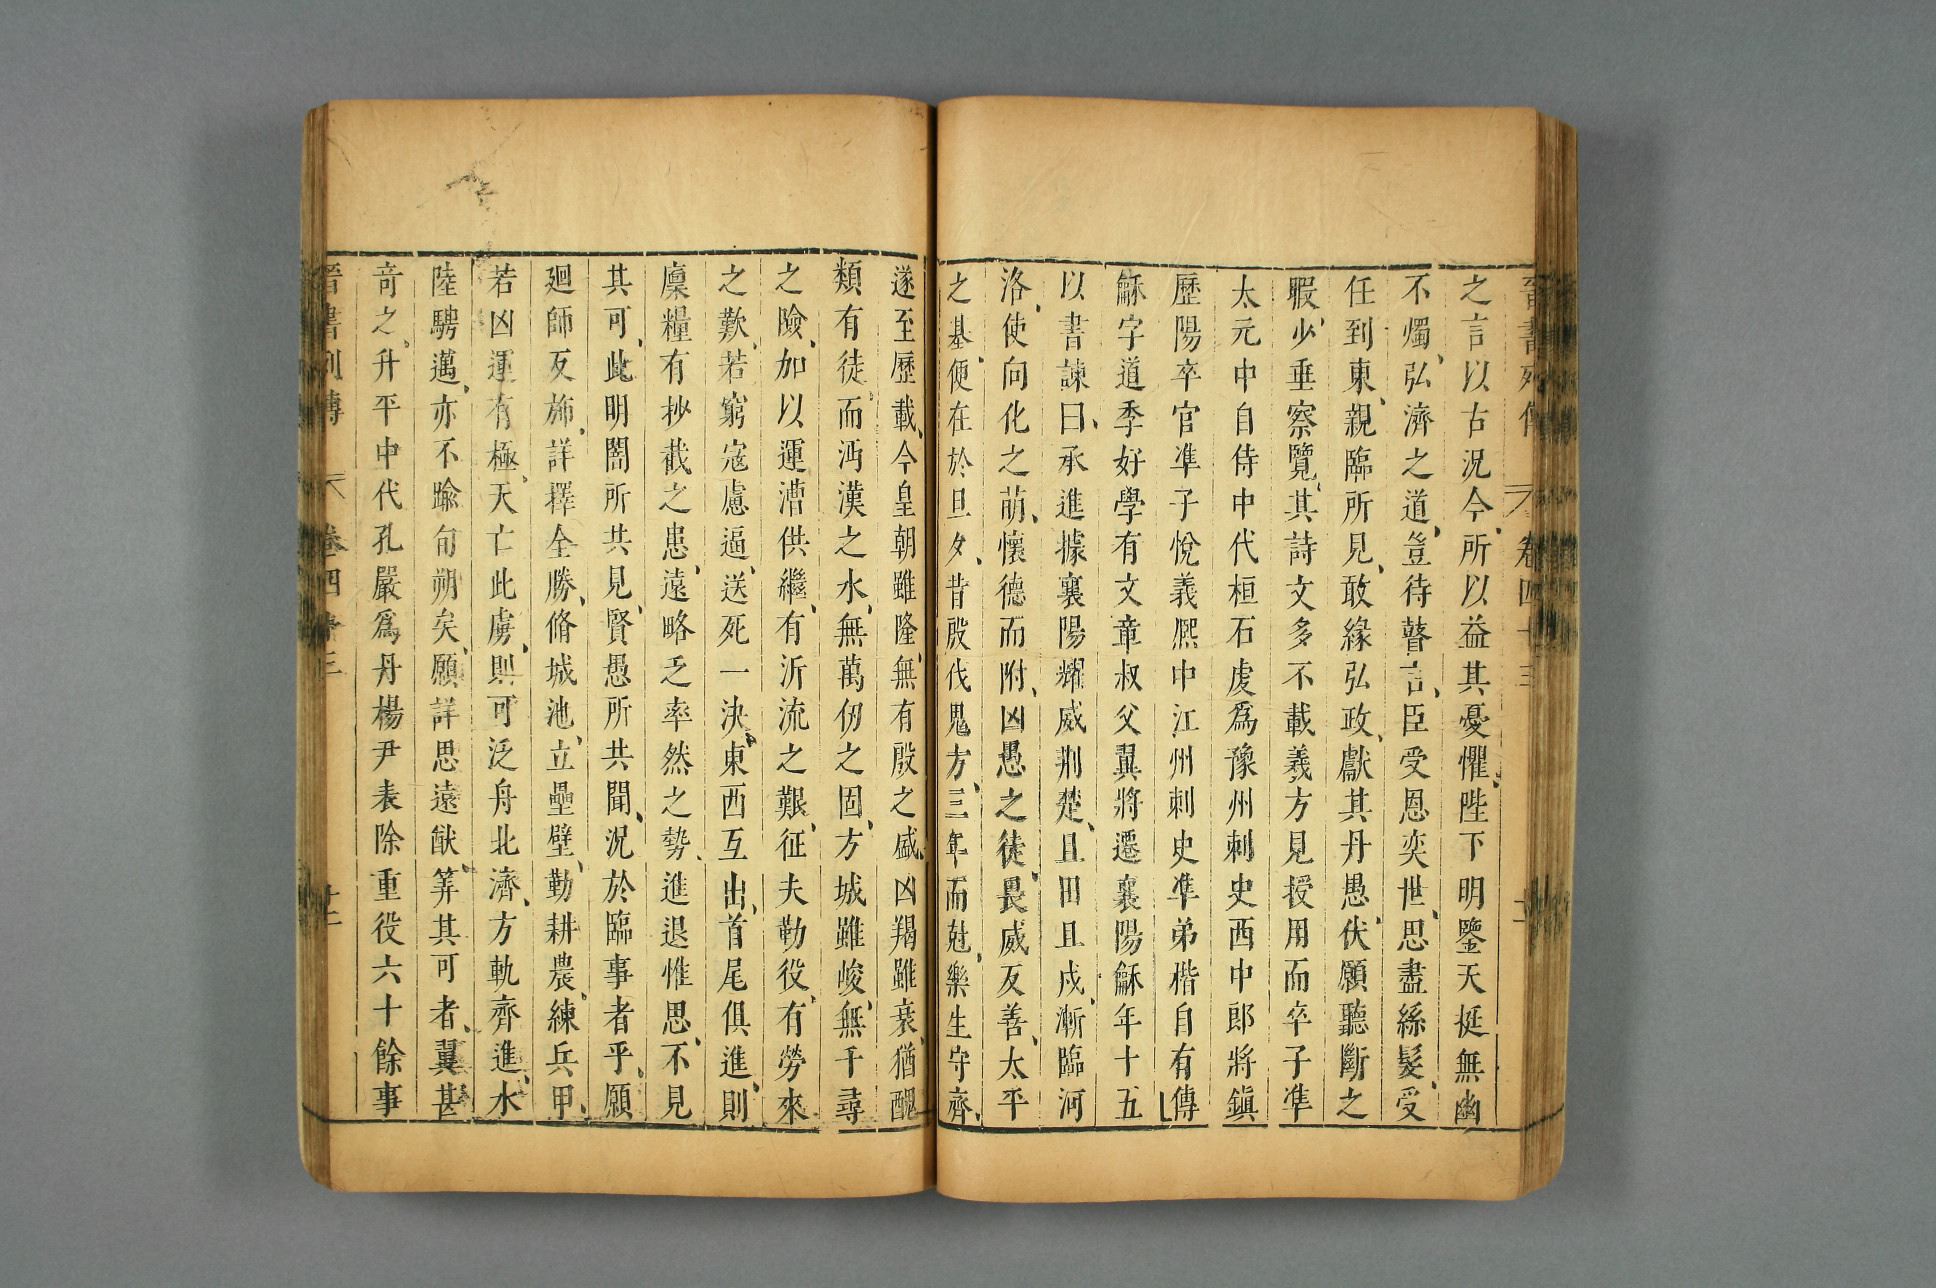 晉書列傳 卷四十三 十一
之言以古況今所以益其憂懼陛下明鑒天挺無幽
不燭弘濟之道豈待瞽言臣受恩奕世思盡絲髮受
任到東親臨所見敢緣弘政獻其丹愚伏願聽斷之
暇少垂察覽其詩文多不載羲方見授用而卒子準
太元中自侍中代桓石虔爲豫州刺史西中郎將鎮
歷陽卒官準子悅義熙中江州刺史準弟楷自有傳
龢字道季好學有文章叔父翼將遷襄陽龢年十五
以書諫曰承進據襄陽耀威荆楚且田且戍漸臨河
洛使向化之萌懷德而附凶愚之徒畏威反善太平
之基便在於旦夕昔殷伐鬼方三年而尅樂生守齊
遂至歷載今皇朝雖隆無有殷之盛凶羯雖衰猶醜
類有徒而沔漢之水無萬仞之固方城雖峻無千尋
之險加以運漕供繼有泝流之艱征夫勤役有勞來
之歎若窮寇慮逼送死一決東西互出首尾俱進則
廩糧有抄截之患遠略乏率然之勢進退惟思不見
其可此明闇所共見賢愚所共聞況於臨事者乎願
廻師反斾詳擇全勝脩城池立壘壁勤耕農練兵甲
若凶運有極天亡此虜則可泛舟北濟方軌齊進水
陸騁邁亦不踰旬朔矣願詳思遠猷筭其可者翼甚
奇之升平中代孔嚴爲丹楊尹表除重役六十餘事
晉書列傳 卷四十三 十二